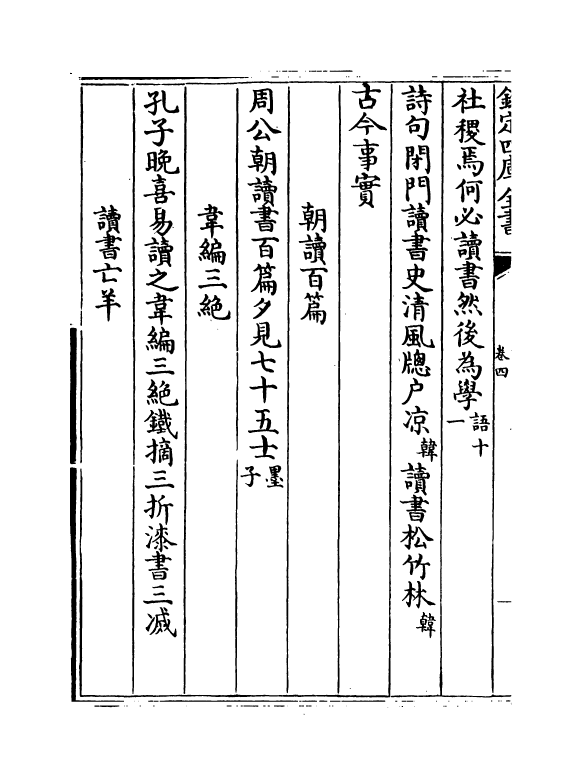 欽定四庫全書
卷四
社稷焉何必讀書然後為學語十一
詩句閉門讀書史清風牕户凉韓讀書松竹林韓
古今事實
朝讀百篇
周公朝讀書百篇夕見七十五士墨子
韋編三絶
孔子晚喜易讀之韋編三絶鐵擿三折漆書三滅
讀書亡羊